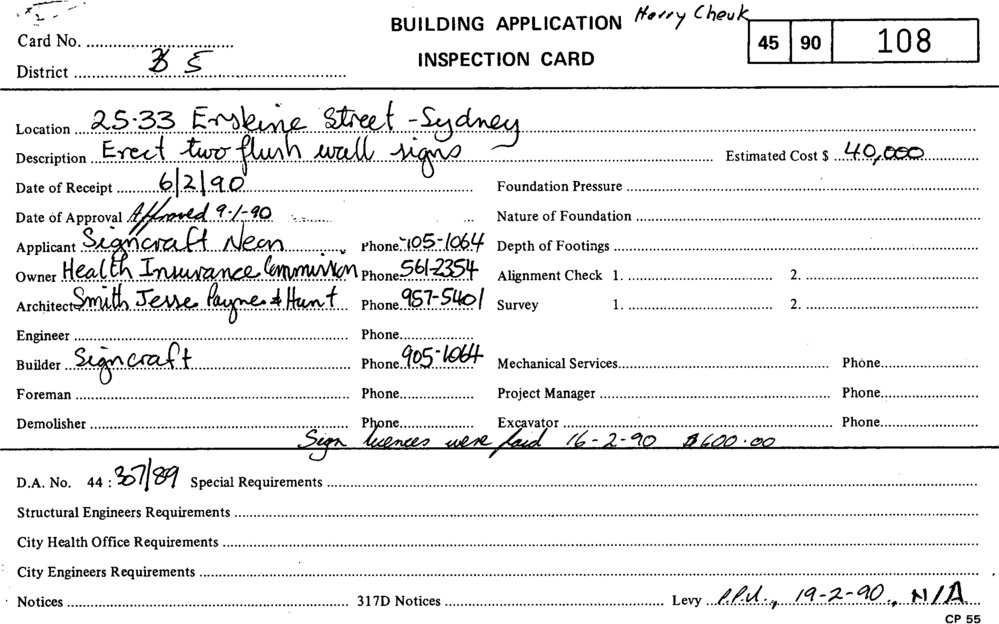 BUILDING APPLICATION Harry Cheuk
Card No. 45 90 108
INSPECTION CARD
District B 5
Location 25-33 Erskine Street - Sydney
Description Erect two flush wall signs Estimated Cost $ 40,000
Date of Receipt 6/2/90 Foundation Pressure
Date of Approval Approved 9-1-90 Nature of Foundation
Applicant Signcraft Neon Phone 905-1064 Depth of Footings
Owner Health Insurance Commission Phone 561-2354 Alignment Check 1. 2.
Architect Smith Jesse Payne & Hunt Phone 957-5401 Survey 1. 2.
Engineer Phone
Builder Signcraft Phone 905-1064 Mechanical Services Phone
Foreman Phone Project Manager Phone
Demolisher Phone Excavator Phone
Sign licences were paid 16-2-90 $600.00
D.A. No. 44: 307/89 Special Requirements
Structural Engineers Requirements
City Health Office Requirements
City Engineers Requirements
Notices 317D Notices Levy P.P.U., 19-2-90, N/A
CP 55